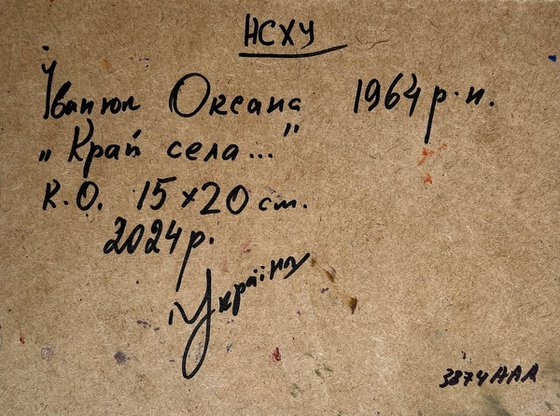 НСХУ
Іванюк Оксана 1964 р.н.
„Край села..."
К.О. 15×20 см.
2024 р.
Україна
3874 НАЛ